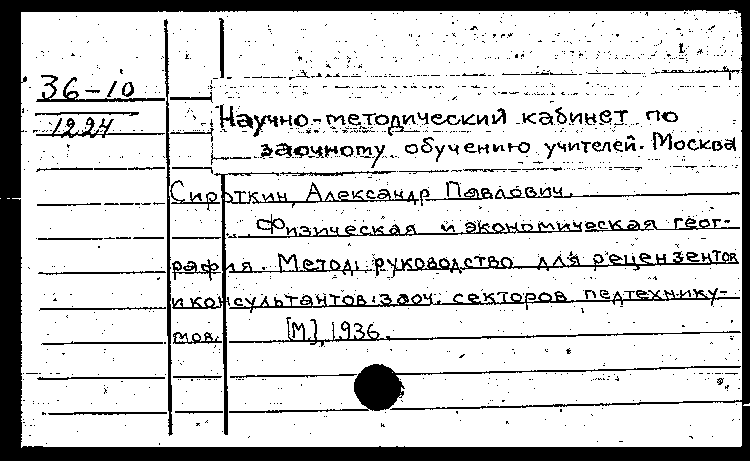 36-10
1224
Научно-методический кабинет по
заочному обучению учителей. Москва
Сироткин, Александр Павлович.
Физическая и экономическая геог-
рафия. Метод. руководство для рецензентов
и консультантов заоч. секторов педтехнику-
мов. [М.], 1936.